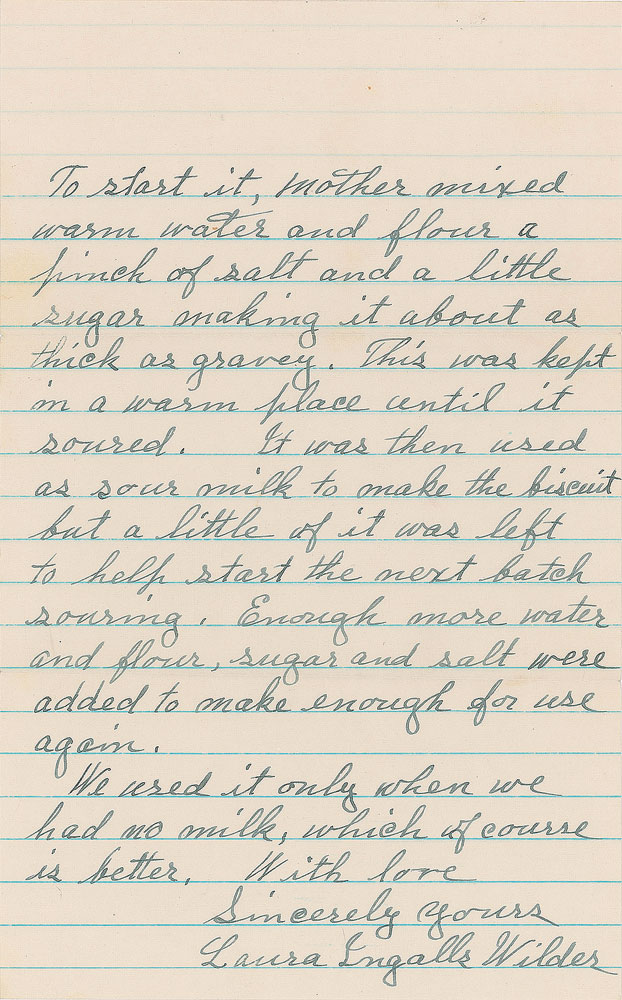 To start it, Mother mixed
warm water and flour a
pinch of salt and a little
sugar making it about as
thick as gravey. This was kept
in a warm place until it
soured. It was then used
as sour milk to make the biscuit
but a little of it was left
to help start the next batch
souring. Enough more water
and flour, sugar and salt were
added to make enough for use
again.
We used it only when we
had no milk, which of course
is better. With love
Sincerely yours
Laura Ingalls Wilder